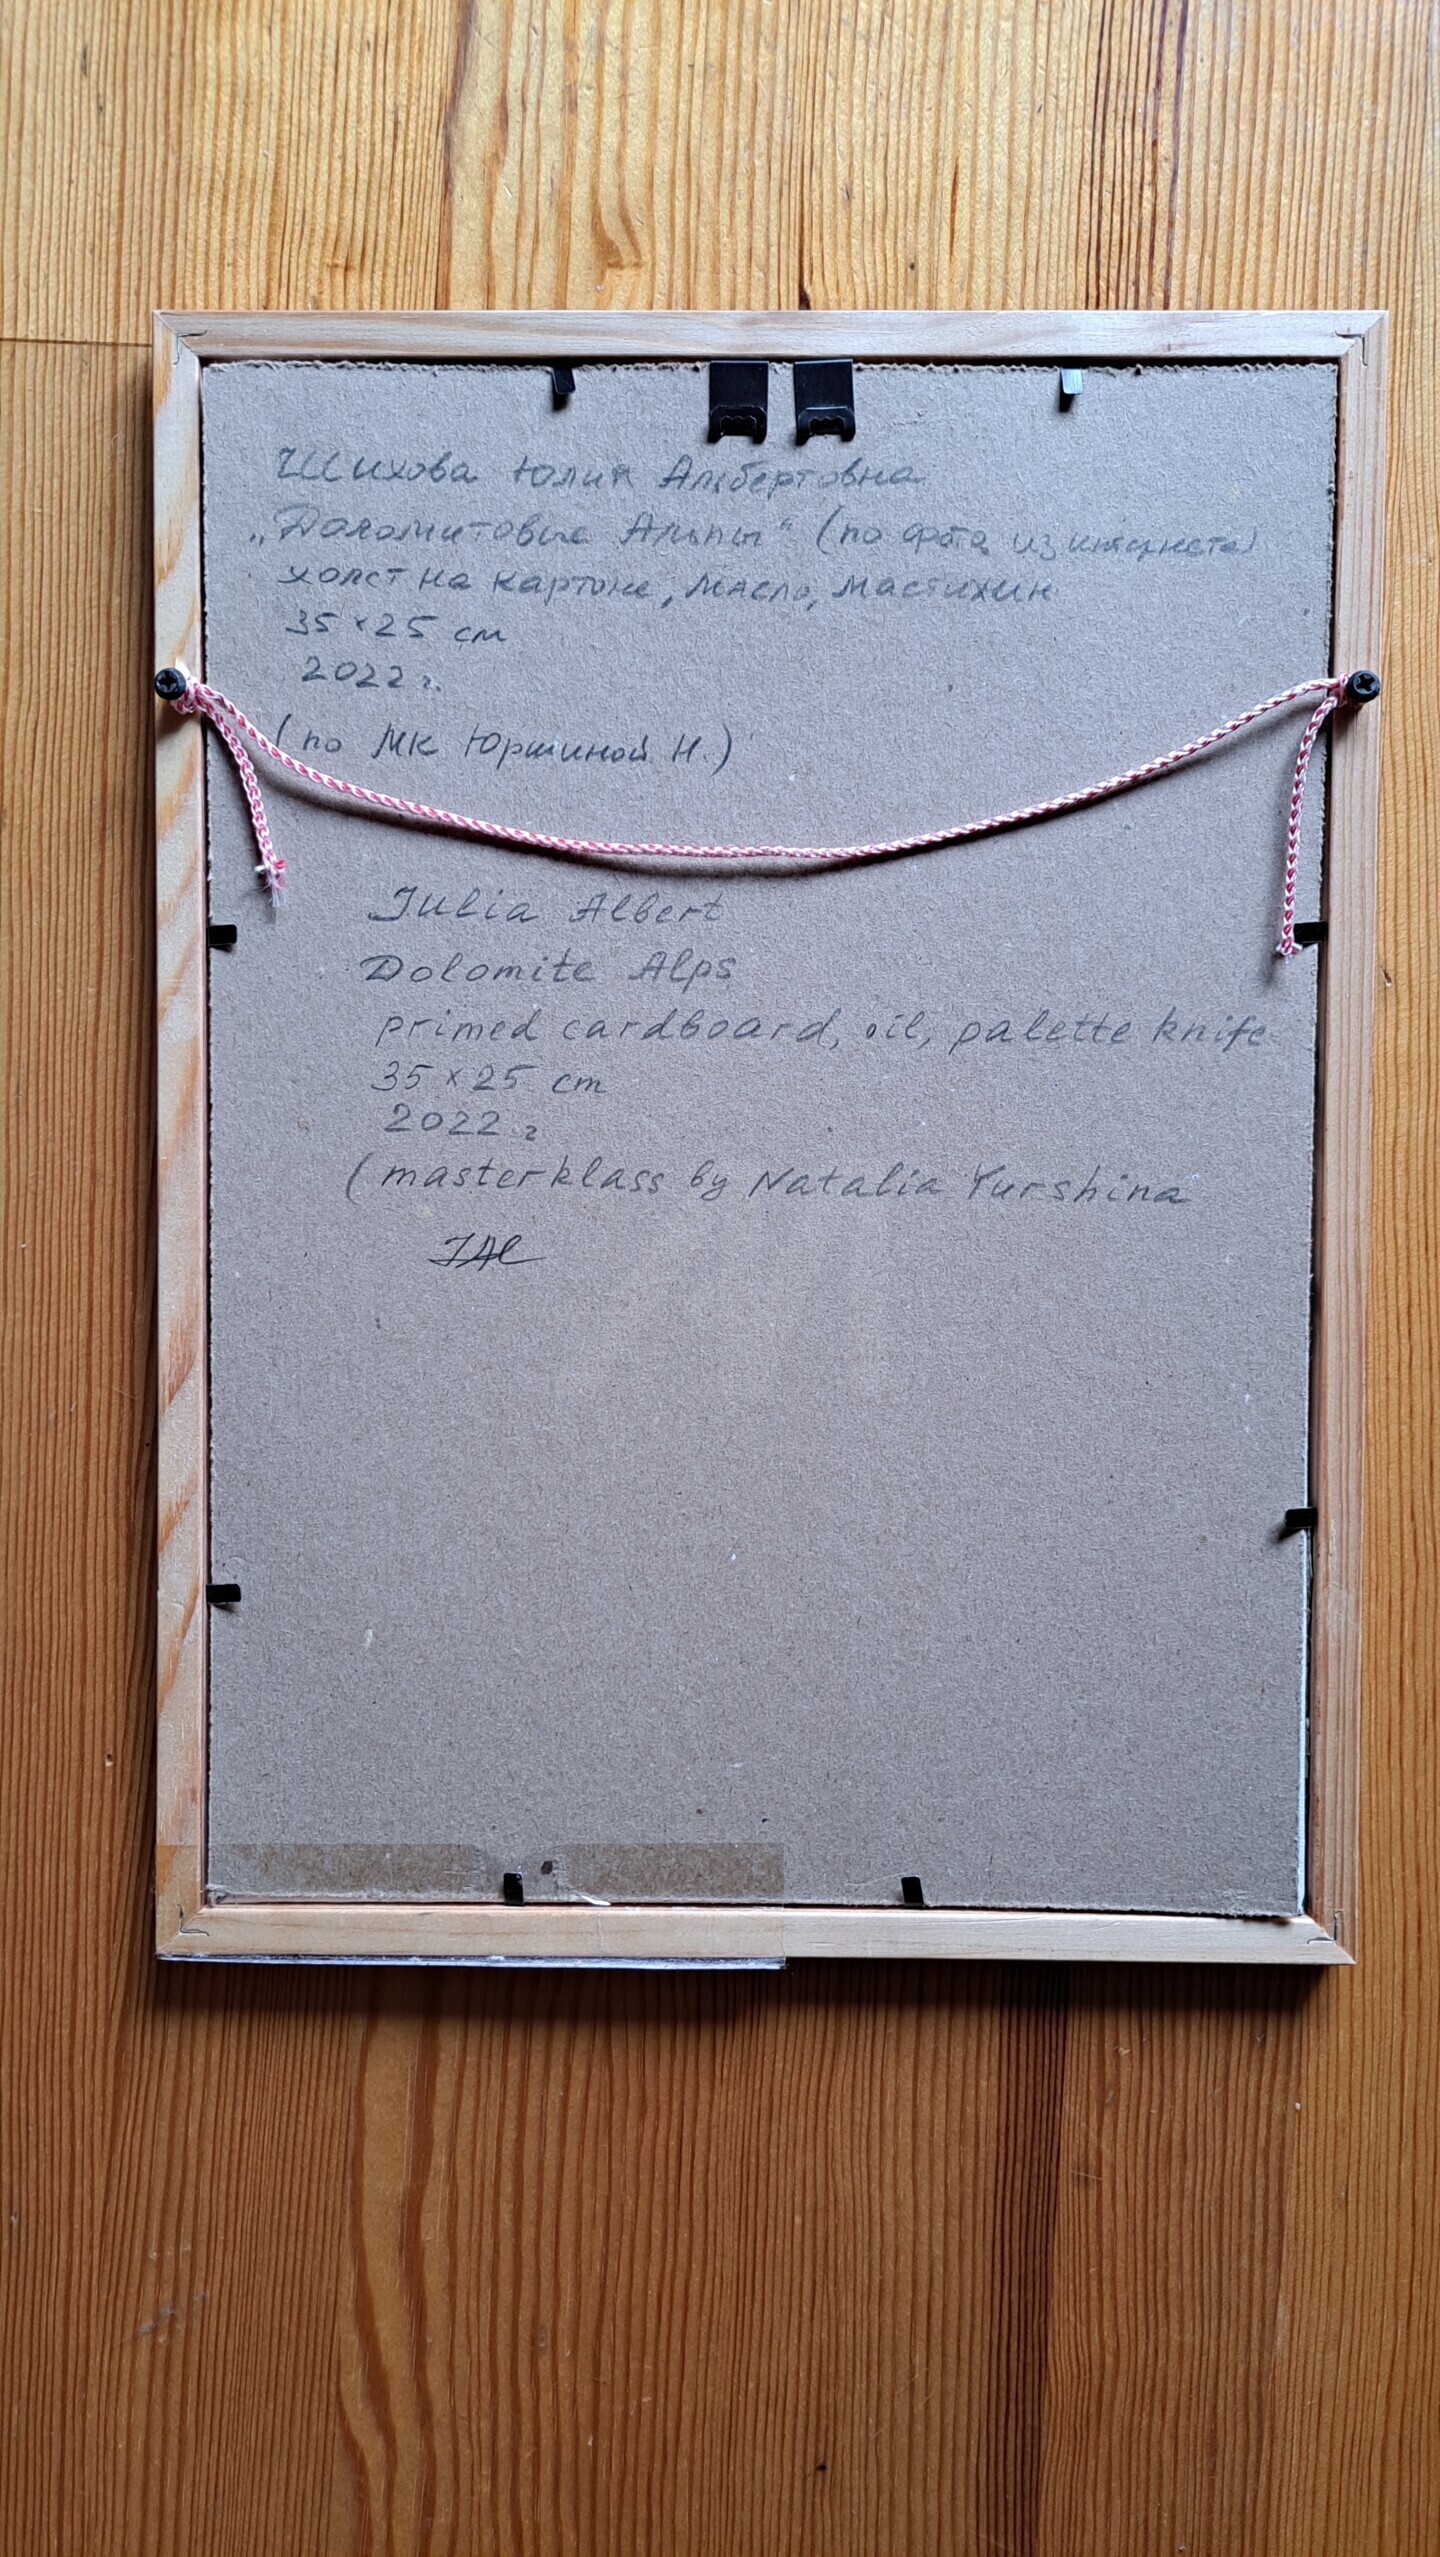 Шихова Юлия Альбертовна
„Доломитовые Альпы“ (по фото из интернета)
холст на картоне, масло, мастихин
35×25 см
2022 г.
(по МК Юршиной Н.)
Julia Albert
Dolomite Alps
primed cardboard, oil, palette knife
35×25 cm
2022 г
(masterklass by Natalia Yurshina